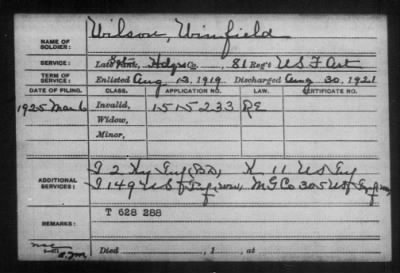 NAME OF SOLDIER: Wilson, Winfield
SERVICE: Late Rank, Hdqrs Co., 81 Reg't US F Art
TERM OF SERVICE: Enlisted Aug 13, 1919 Discharged Aug 30, 1921
DATE OF FILING. CLASS. APPLICATION NO. LAW. CERTIFICATE NO.
1925 Mar 6 Invalid, 1515233 RE
Widow,
Minor,
ADDITIONAL SERVICES: K 11 US
M G Co 305 US
REMARKS: T 628 288
Died , 1 , at